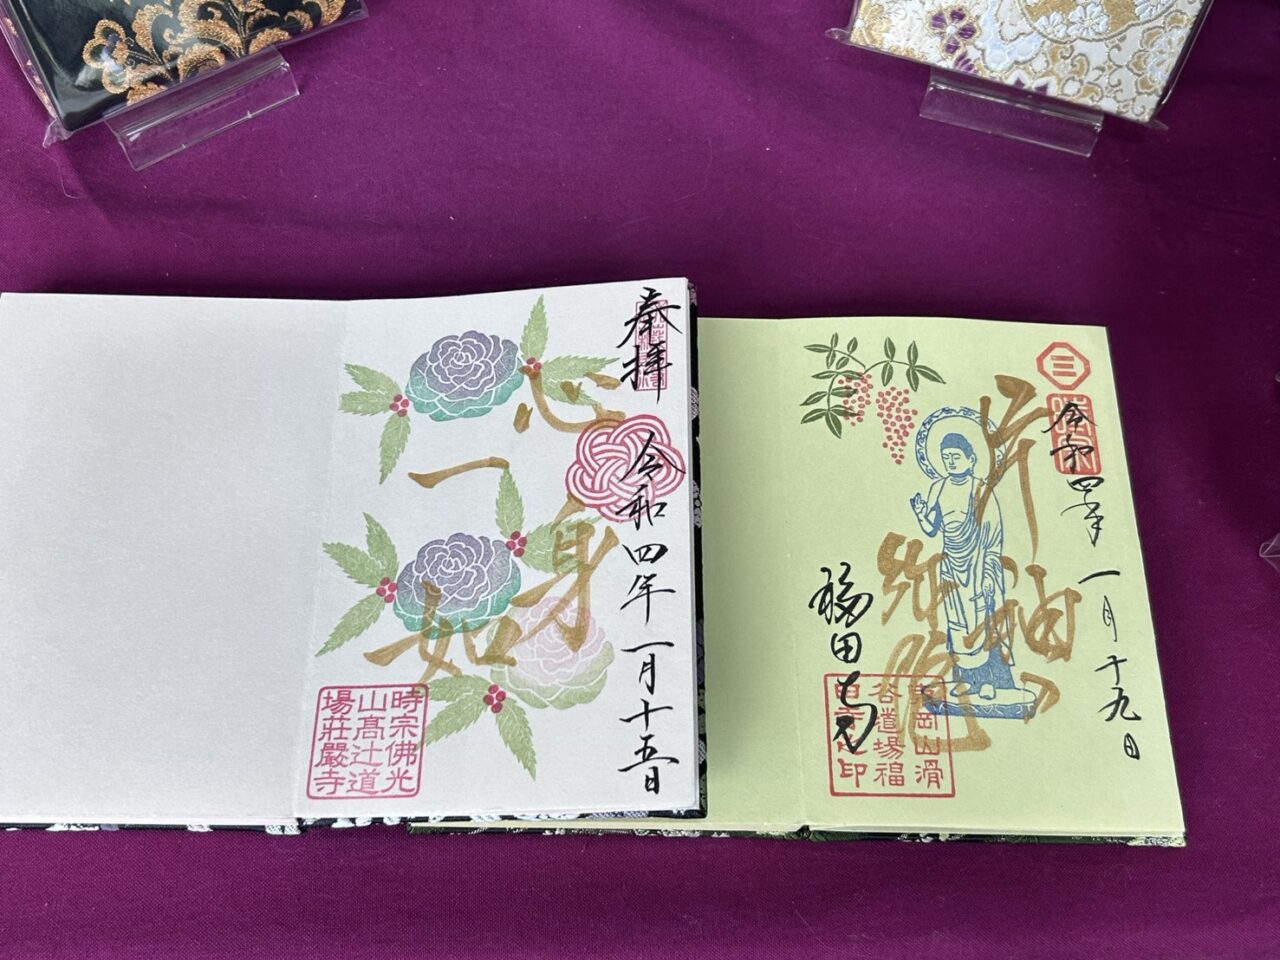 奉拝
令和四年一月十五日
心身
一如
時宗佛光
山髙辻道
場莊嚴寺
三
令和四年一月十九日
片袖
福田寺
岡山滑
谷道場福
田寺之印